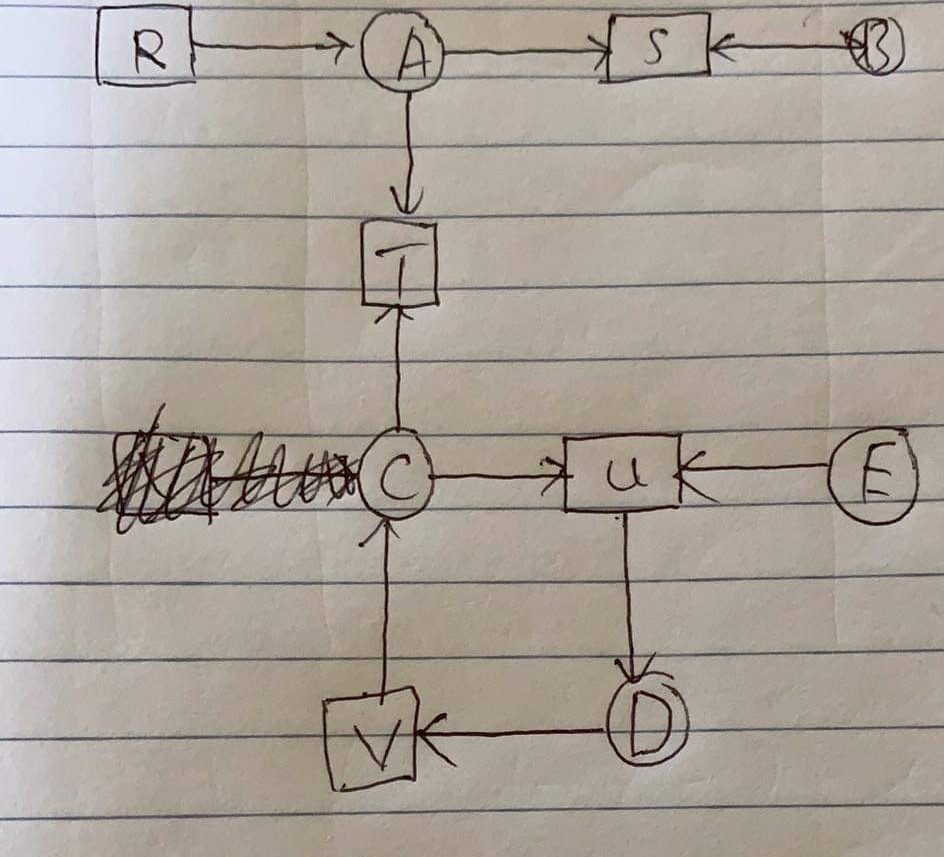 R A S B
T
C U E
V D